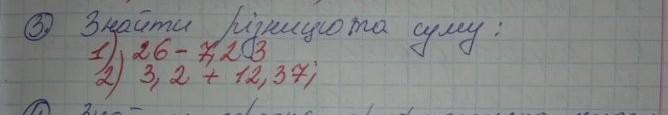 3. Знайти різницю та суму:
1) 26 - 7,23
2) 3,2 + 12,37;